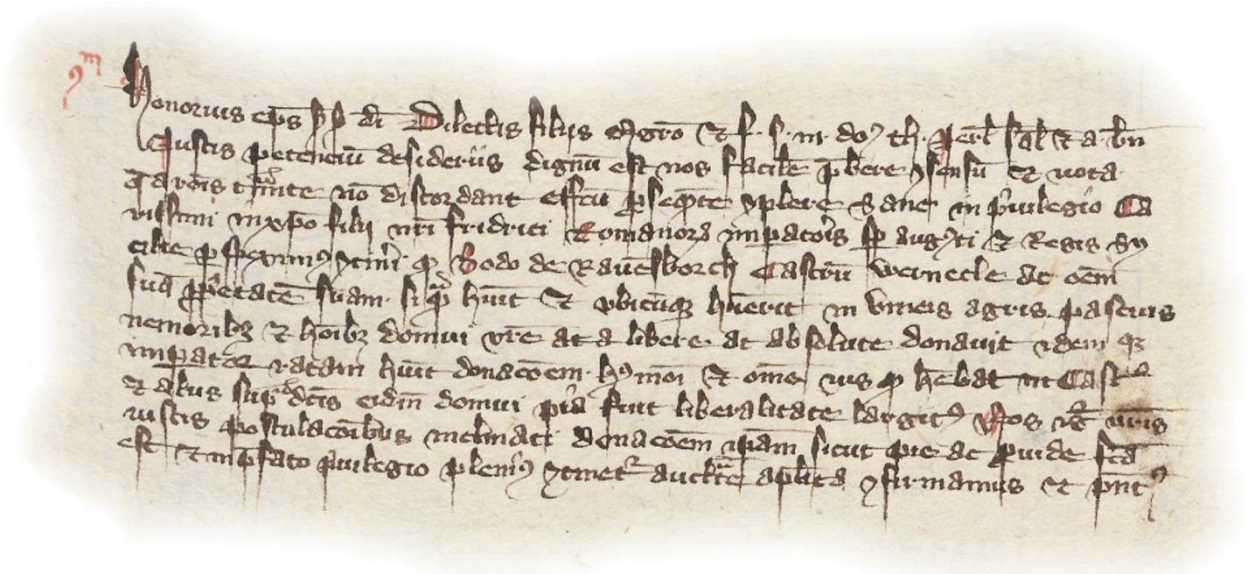 Honorius eps s s di Dilectis filijs Mgro et f. s. m. do9 th. Jerl Sal et a. bn
Justis petenciu desiderijs dignu est nos facile pbere 9sensu et uota
q a rois tmite no discordant effcu pseqnte 9plere Sane in priuilegio Ca
rissimi in xpo filij nri fridrici Romanor impatoris sp augusti et Regis Sy
cilie pspeximus 9tineri q Bodo de Rauesborch Castru wernecle ac oem
sua ppietate suam. si q huit et vbicuq huerit in vineis agris pascuis
nemoribz et hoibz domui vre at a libere ac absolute donauit idem q
impator ratam huit donacoem. h9moi et ome ius q hebat in Castro
et alijs supdcis eidm domui pia fuit liberalitate largit9 Nos itr uris
iustis postulacoibus inclinati donacoem ipam sicut pie ac puide fca
est et in pfato priuilegio pleni9 9tinet auctte aplica 9firmamus et pnt9